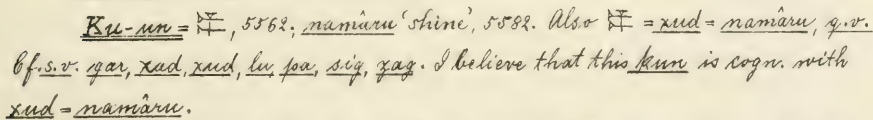 Ku-un = 𒉺, 5562; namâru 'shine', 5582. Also 𒉺 = xud = namâru, q.v.
Cf. s.v. gar, xad, xud, lu, pa, sig, zag. I believe that this kun is cogn. with
xud = namâru.